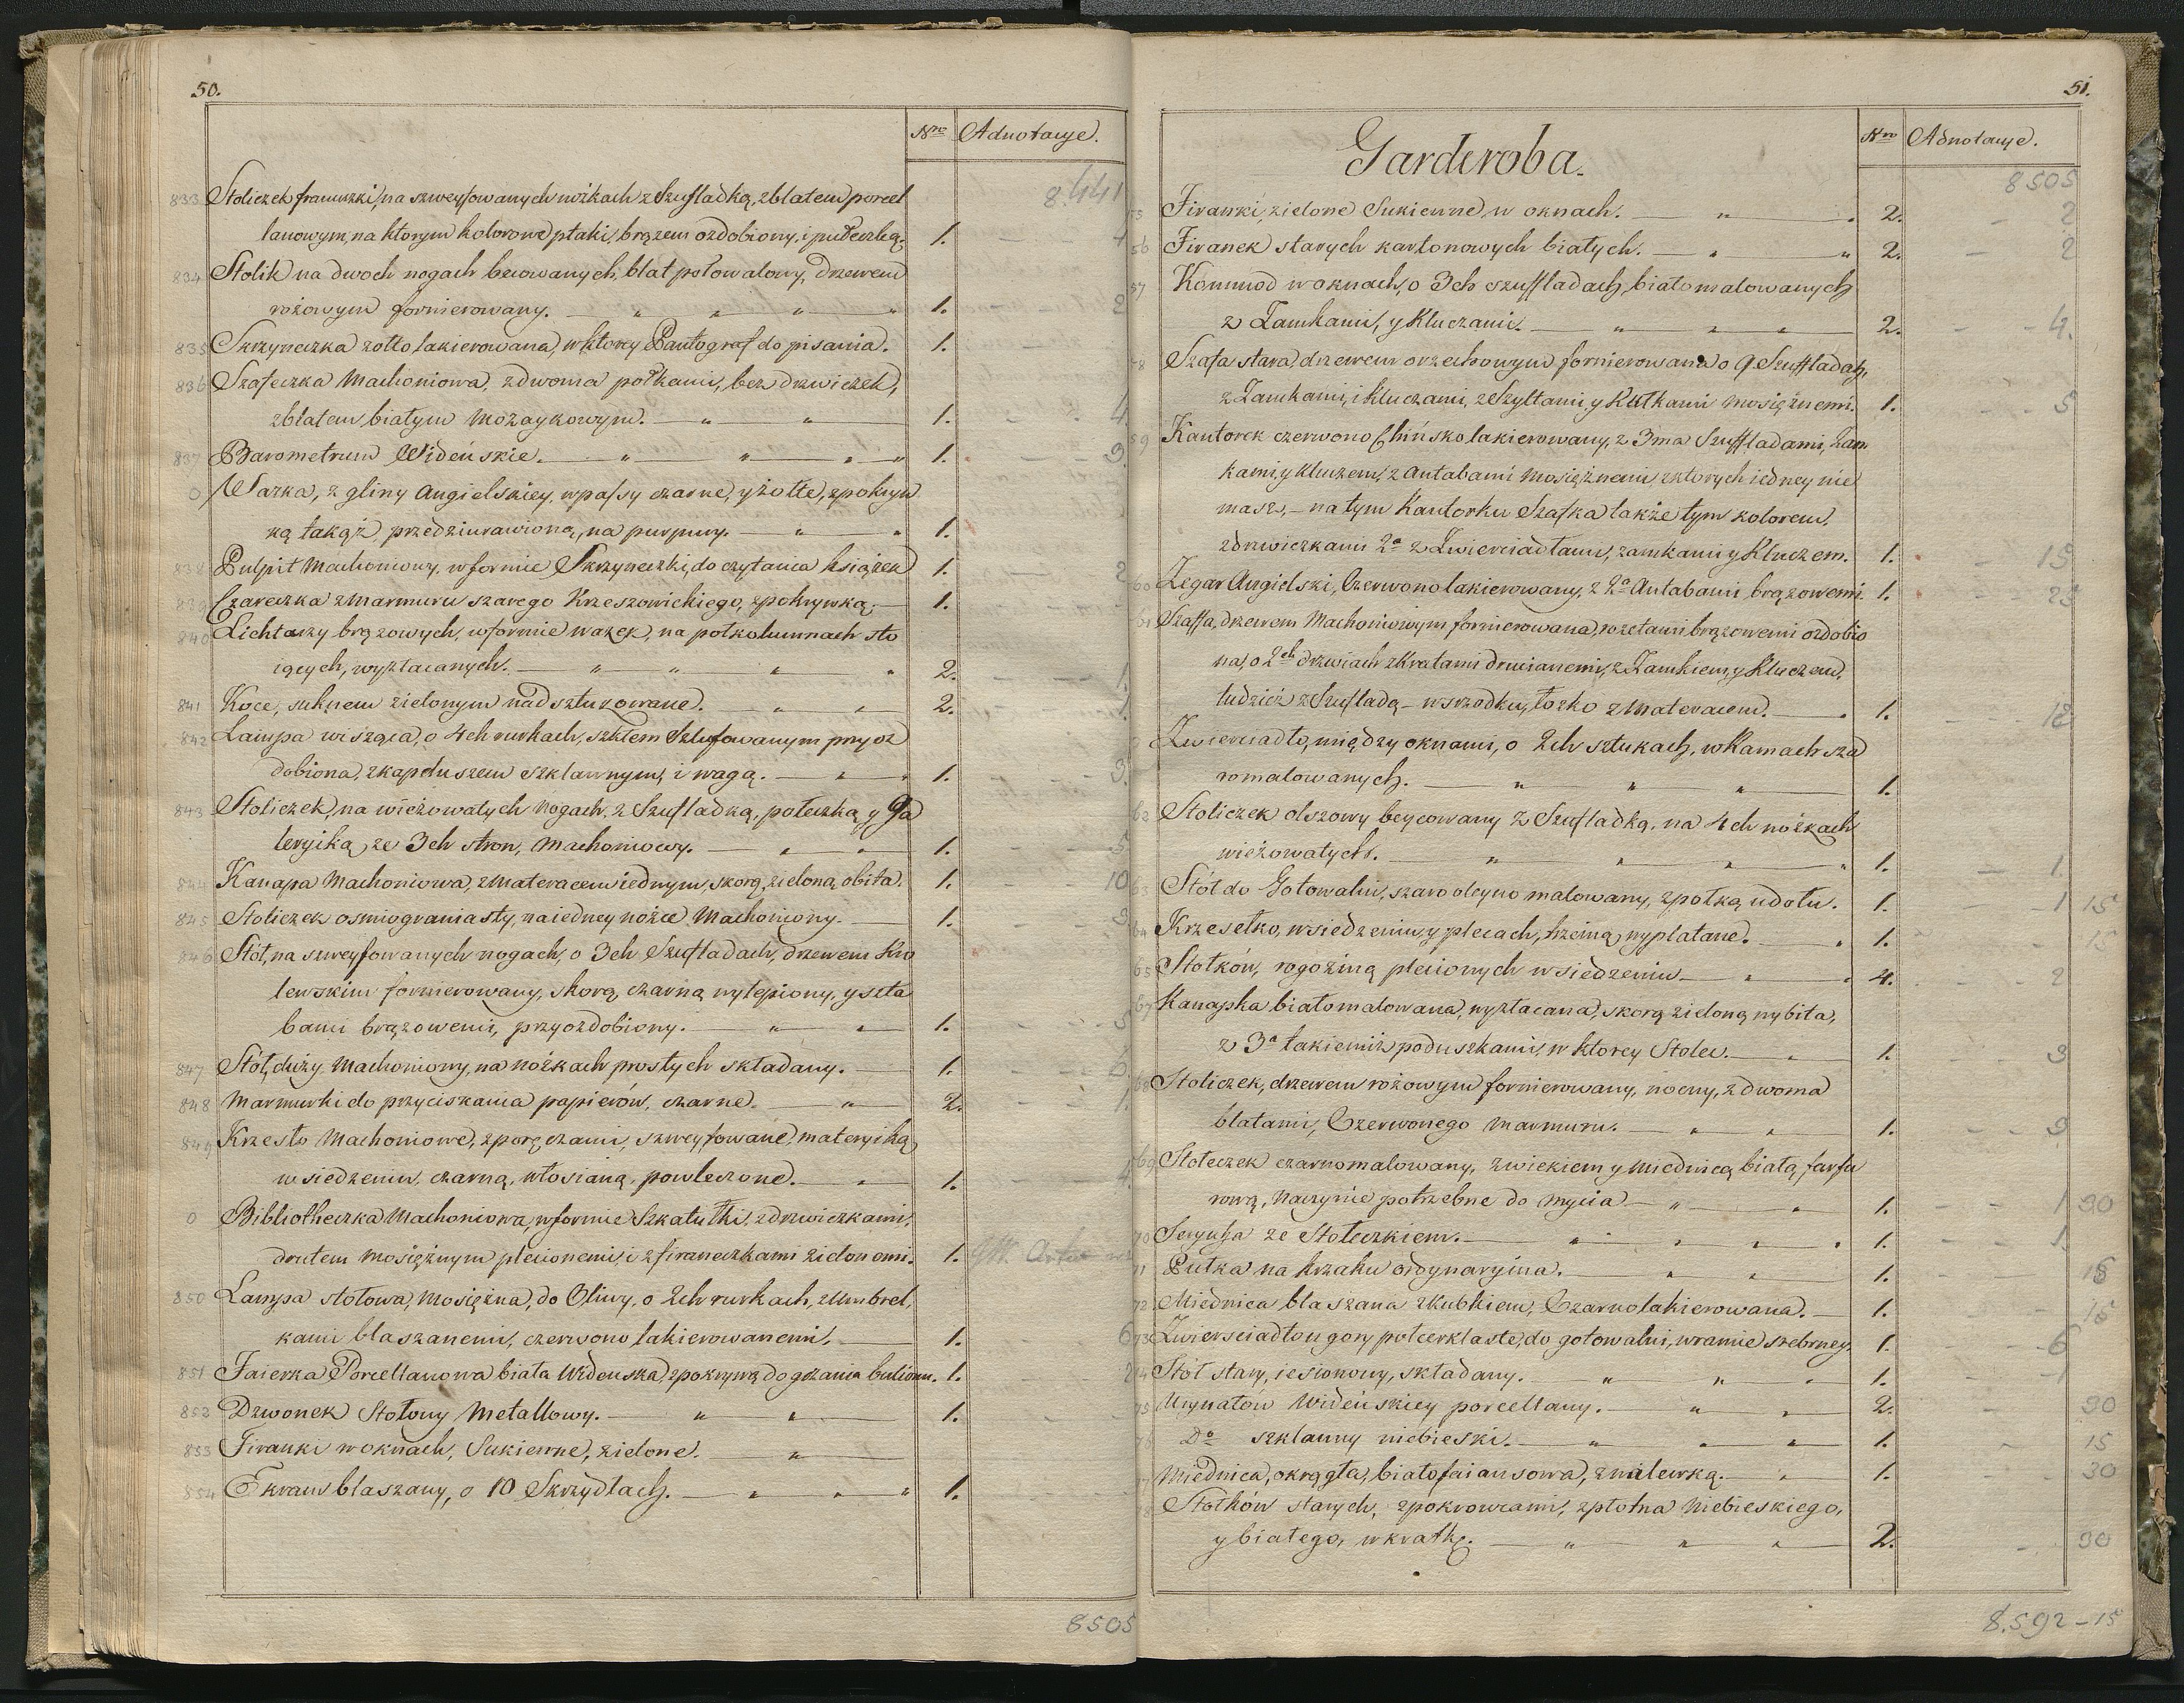 50.
Nro Adnotacye.
8.441
833 Stoliczek francuzki, na szweyfowanych nóżkach z Szufladką, z blatem porcel
lanowym, na ktorym kolorowe ptaki, brązem ozdobiony, i pułeczką. 1. 4
834 Stolik na dwoch nogach becowanych, blat połowalowy, drzewem
rożowym fornierowany. — " " " " 1. 2
835 Skrzyneczka zołto lakierowana, w ktorey Pantograf do pisania. 1.
836 Szafeczka Machoniowa, z dwoma połkami, bez drzwiczek,
z blatem białym Mozaykowym. — " " 1. 4
837 Barometrum Wideńskie. — " " " " 1. 3
0 Wazka, z gliny Angielskiey, w passy czarne, y żołte, z pokryw
ką takąż, przedziurawioną, na purpury. — " " 1.
838 Pulpit Machoniowy, w formie Skrzyneczki, do czytania książek 1. 2
839 Czareczka z Marmuru szarego Krzeszowickiego, z pokrywką. — 1.
840 Lichtarzy brązowych, w formie wazek, na połkolumnach sto
iących, wyzłacanych. — " " " " 2. 1.
841 Koce, suknem zielonym nadsztukowane. — " " 2. 1.
842 Lampa wisząca, o 4ch rurkach, szkłem Szlufowanym przyoz
dobiona, z kapeluszem szklannym, i wagą. — " " 1. 3.
843 Stoliczek, na wieżowatych Nogach, z Szufladką, połeczką y Ga
leryiką ze 3ch stron, Machoniowy. — " " 1. 5
844 Kanapa Machoniowa, z Materacem iednym, skorą zieloną obita. 1. 10
845 Stoliczek osmiograniasty, na iedney nóżce Machoniowy. — 1. 3
846 Stół, na szweyfowanych nogach, o 3ch Szufladach, drzewem Kró
lewskim fornierowany, skorą czarną wylepiony, y szta
bami brązowemi, przyozdobiony. — " " 1. 5
847 Stół, duży Machoniowy, na nóżkach prostych składany. — 1. 6.
848 Marmurki do przyciskania papierów, czarne. — " 2. 1.
849 Krzesło Machoniowe, z poręczami, szweyfowane, materyiką
w siedzeniu, czarną, włosianą, powleczone. — " 1. 4.
0 Bibliotheczka Machoniowa, w formie Szkatułki, z drzwiczkami,
drutem Mosiężnym plecionemi, i z firaneczkami zielonemi. 1.
850 Lampa stołowa, Mosiężna, do Oliwy, o 2ch rurkach, z Umbrel,
kami blaszanemi, czerwono lakierowanemi. — 1. 6
851 Faierka Porcellanowa biała Wideńska, z pokrywą do grzania bulionu. 1. 2
852 Dzwonek Stołowy Metallowy. — " " 1.
853 Firanki w oknach, Sukienne, zielone. — "
854 Ekran blaszany, o 10 Skrzydłach. — " " " 1.
8505
51.
Garderoba.
Nro Adnotacye.
8505
55 Firanki, zielone Sukienne, w oknach. — " " 2. 2
56 Firanek starych kartonowych białych. — " " 2. 2
57 Kommod w oknach, o 3ch szuffladach, biało malowanych
z Zamkami, y Kluczami. — " " " 2. 4.
58 Szafa stara, drzewem orzechowym fornierowana o 9 Szuffladach,
z Zamkami, i Kluczami, z Szyltami, y Kułkami Mosiężnemi. 1. 5
59 Kantorek czerwono Chińsko lakierowany, z 3ma Szuffladami, Zam
kami, y Kluczem, z Antabami Mosiężnemi z ktorych iedney nie
masz, — na tym Kantorku Szafka także tym kolorem,
z drzwiczkami 2a z Zwierciadłami, zamkami y Kluczem. 1. 15
60 Zegar Angielski, Czerwono lakierowany, z 2a Antabami brązowemi. 1. 25
61 Szaffa, drzewem Machoniowym fornierowana, rozetami brązowemi ozdobio
na, o 2ch drzwiach z Kratami drucianemi, z Zamkiem, y Kluczem,
tudzież z Szufladą — w srzodku, łozko z Materacem. — " 1. 12
Zwierciadło, między oknami, o 2ch sztukach, w Ramach sza
romalowanych. — " " " 1.
62 Stoliczek olszowy beycowany z Szufladką, na 4ch nóżkach
wieżowatych. — " " " " 1. 1
63 Stół do Gotowalni, szaro oleyno malowany, z połką u dołu. 1. 1 15
64 Krzesełko, w siedzeniu, y plecach, trzciną wyplatane. — " 1. 15
65 Stołków, rogoziną plecionych w siedzeniu — " " 4. 2
67 Kanapka biało malowana, wyzłacana, skorą zieloną wybita,
z 3a takiemiż poduszkami, w ktorey Stolec. — " 1. 3
68 Stoliczek, drzewem rożowym fornierowany, nocny, z dwoma
blatami, Czerwonego Marmuru. — " " 1. 3
69 Stołeczek czarnomalowany, z wiekiem y Miednicą białą farfu
rową, Naczynie potrzebne do Mycia — " " 1. 1 30
70 Serynga ze Stołeczkiem. — " " " " 1. 1.
71 Putka na krzaku ordynaryina. — " " 1. 15
72 Miednica blaszana z Kubkiem, Czarno lakierowana. — 1. 15
73 Zwierciadło u gory połcerklaste, do gotowalni, w ramie srebrney. 1. 6
74 Stół stary, iesionowy, składany. — " " " 1. 1
75 Urynałów Wideńskiey porcellany. — " " 2. 30
76 Do szklanny niebieski. — " " " 1. 15
77 Miednica, okrągła, biało faiansowa, z nalewką. — " 1. 30
78 Stołków starych, z pokrowcami, z płotna Niebieskiego,
y białego, w kratkę. — " " " 2. 30
8.592 - 15